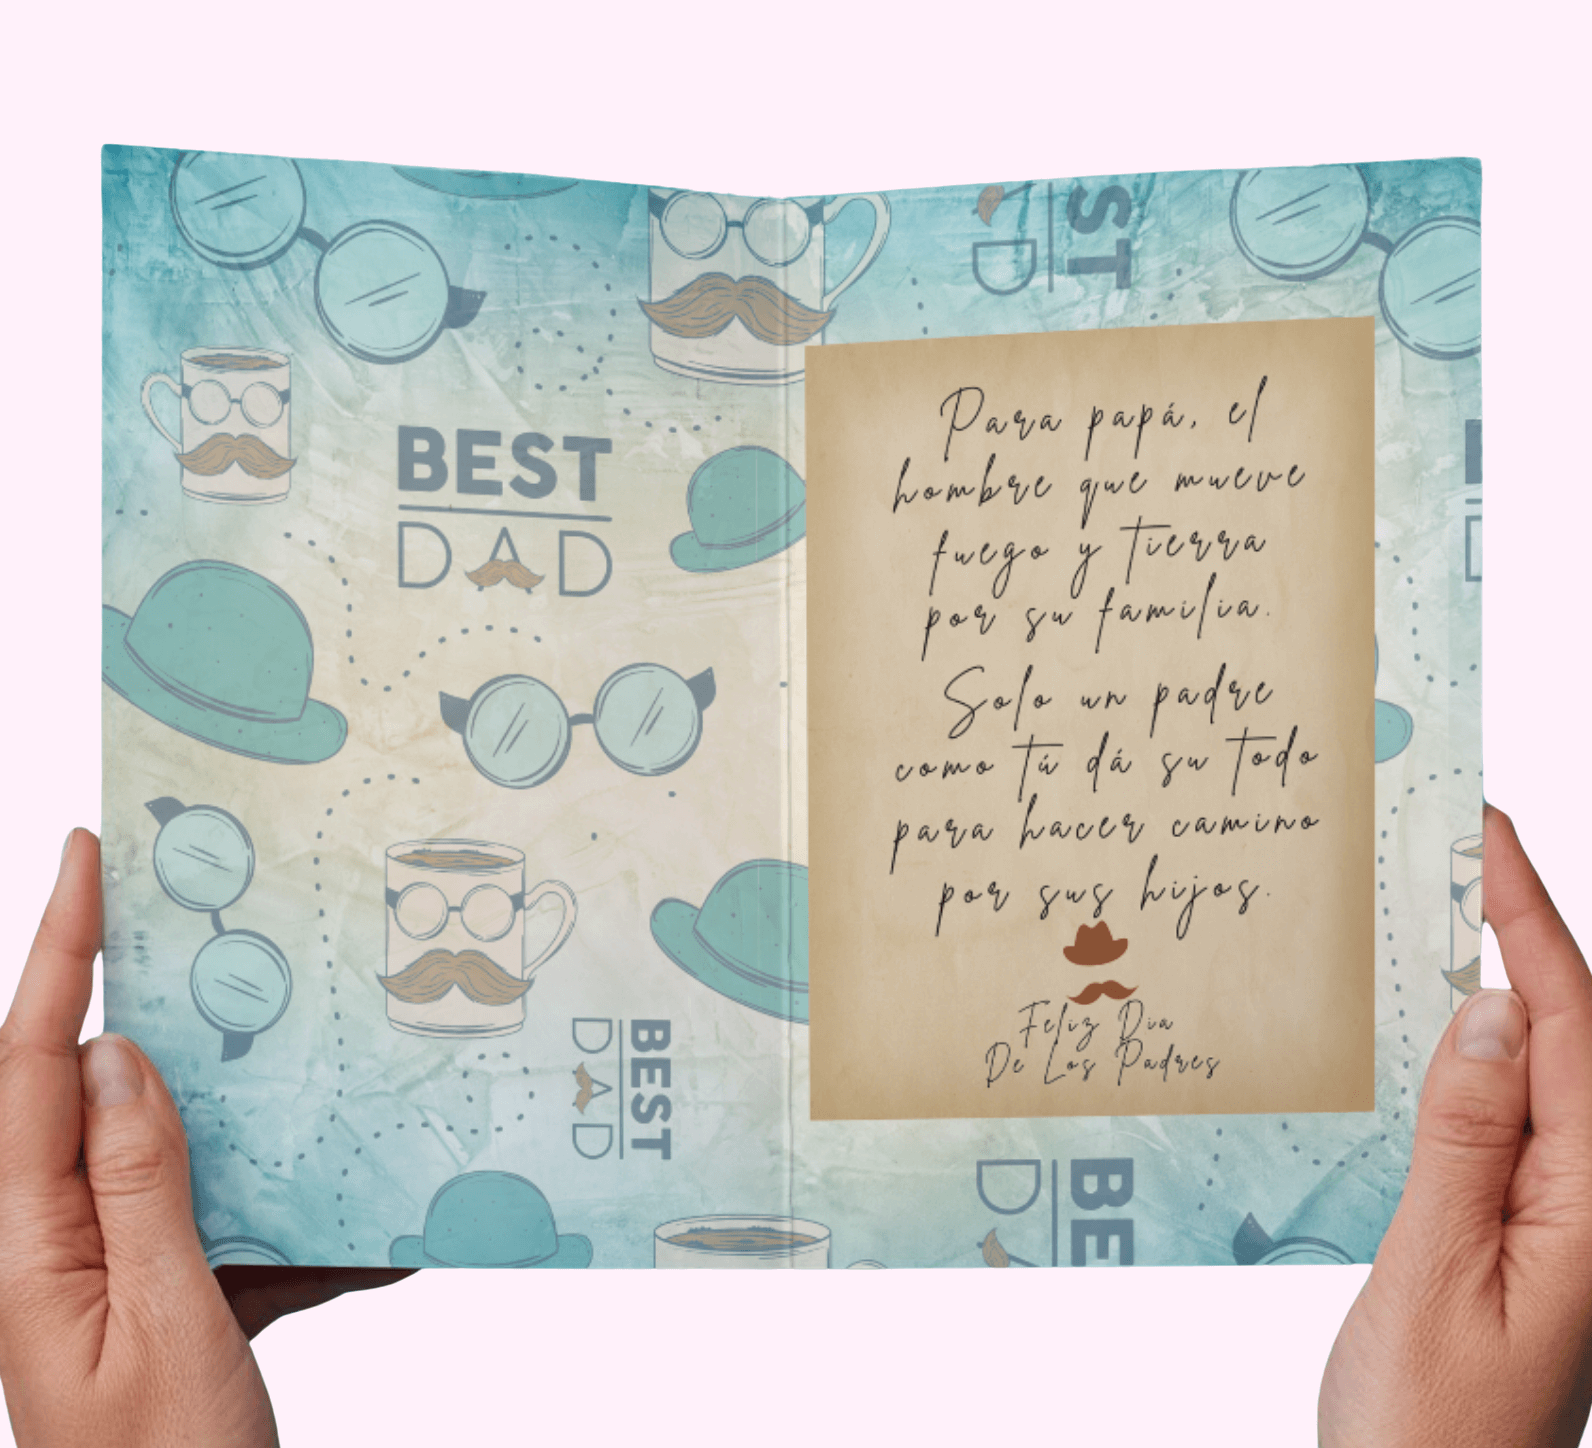 BEST
DAD
BEST
DAD
ST
D
Para papá, el
hombre que mueve
fuego y tierra
por su familia.
Solo un padre
como tú dá su todo
para hacer camino
por sus hijos.
Feliz Dia
De Los Padres
BE
D